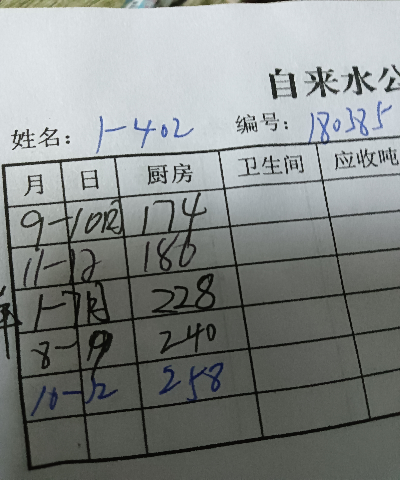 自来水公
姓名：1-402 编号：180385
月 日 厨房 卫生间 应收吨
9-10月 174
11-12 186
1-7月 228
8-9 240
10-12 258